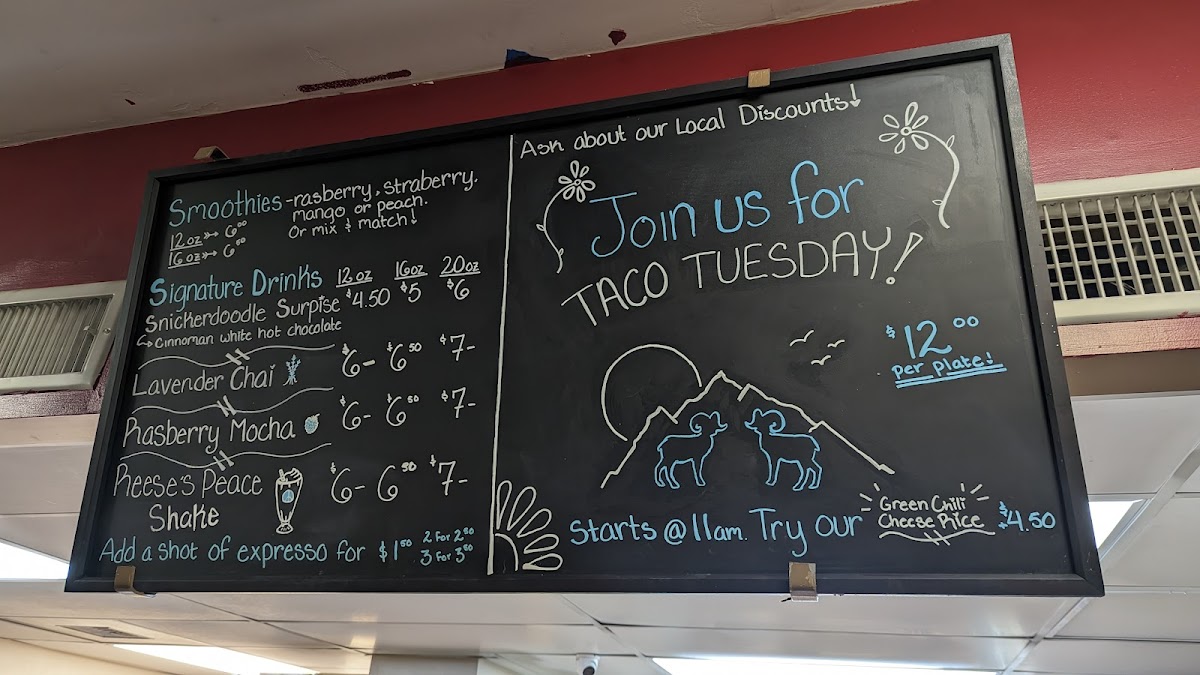 Smoothies - rasberry, straberry,
mango, or peach.
Or mix & match!
12 oz → 6⁰⁰
16 oz → 6⁵⁰
Signature Drinks 12 oz 16 oz 20 oz
Snickerdoodle Surpise $4.50 $5 $6
↳ Cinnoman white hot chocolate
Lavender Chai $6- $6⁵⁰ $7-
Rasberry Mocha $6- $6⁵⁰ $7-
Reese's Peace $6- 6⁵⁰ $7-
Shake
Add a shot of expresso for $1⁵⁰ 2 for 2⁵⁰
3 for 3⁵⁰
Ask about our Local Discounts!
Join us for
TACO TUESDAY!
$12⁰⁰
per plate!
Starts @ 11am. Try our Green Chili $4.50
Cheese Rice